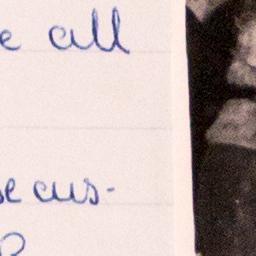 e all
se cus-